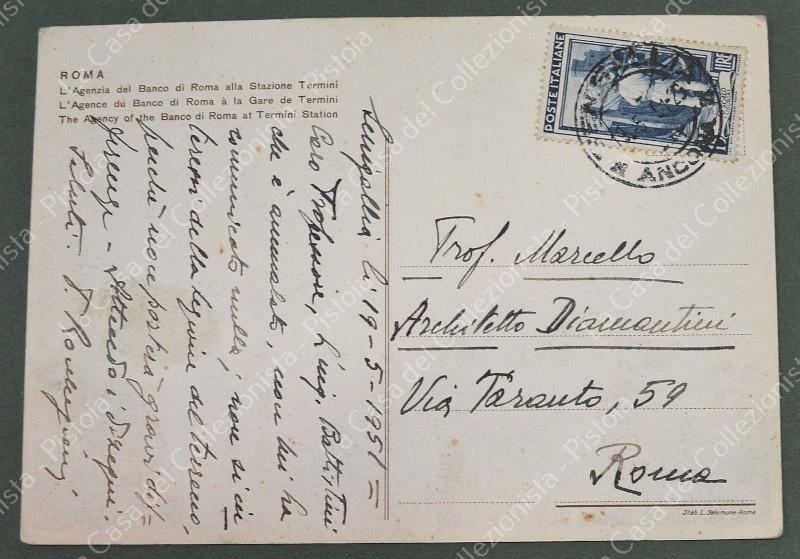 ROMA
L'Agenzia del Banco di Roma alla Stazione Termini
L'Agence du Banco di Roma à la Gare de Termini
The Agency of the Banco di Roma at Termini Station
Senigallia li 19-5-1951 =
Caro Professore, l'ing. Battistini
che è ammalato, non mi ha
comunicato nulla; non si in=
teressi della regione del terreno,
perché non possiede gravi dif=
Attendo i disegni.
Saluti.
POSTE ITALIANE
LIRE
SENIGALLIA
ANCONA
Prof. Marcello
Architetto Diamantini
Via Taranto, 59
Roma
Stab. L. Salomone Roma
Casa del Collezionista - Pistoia